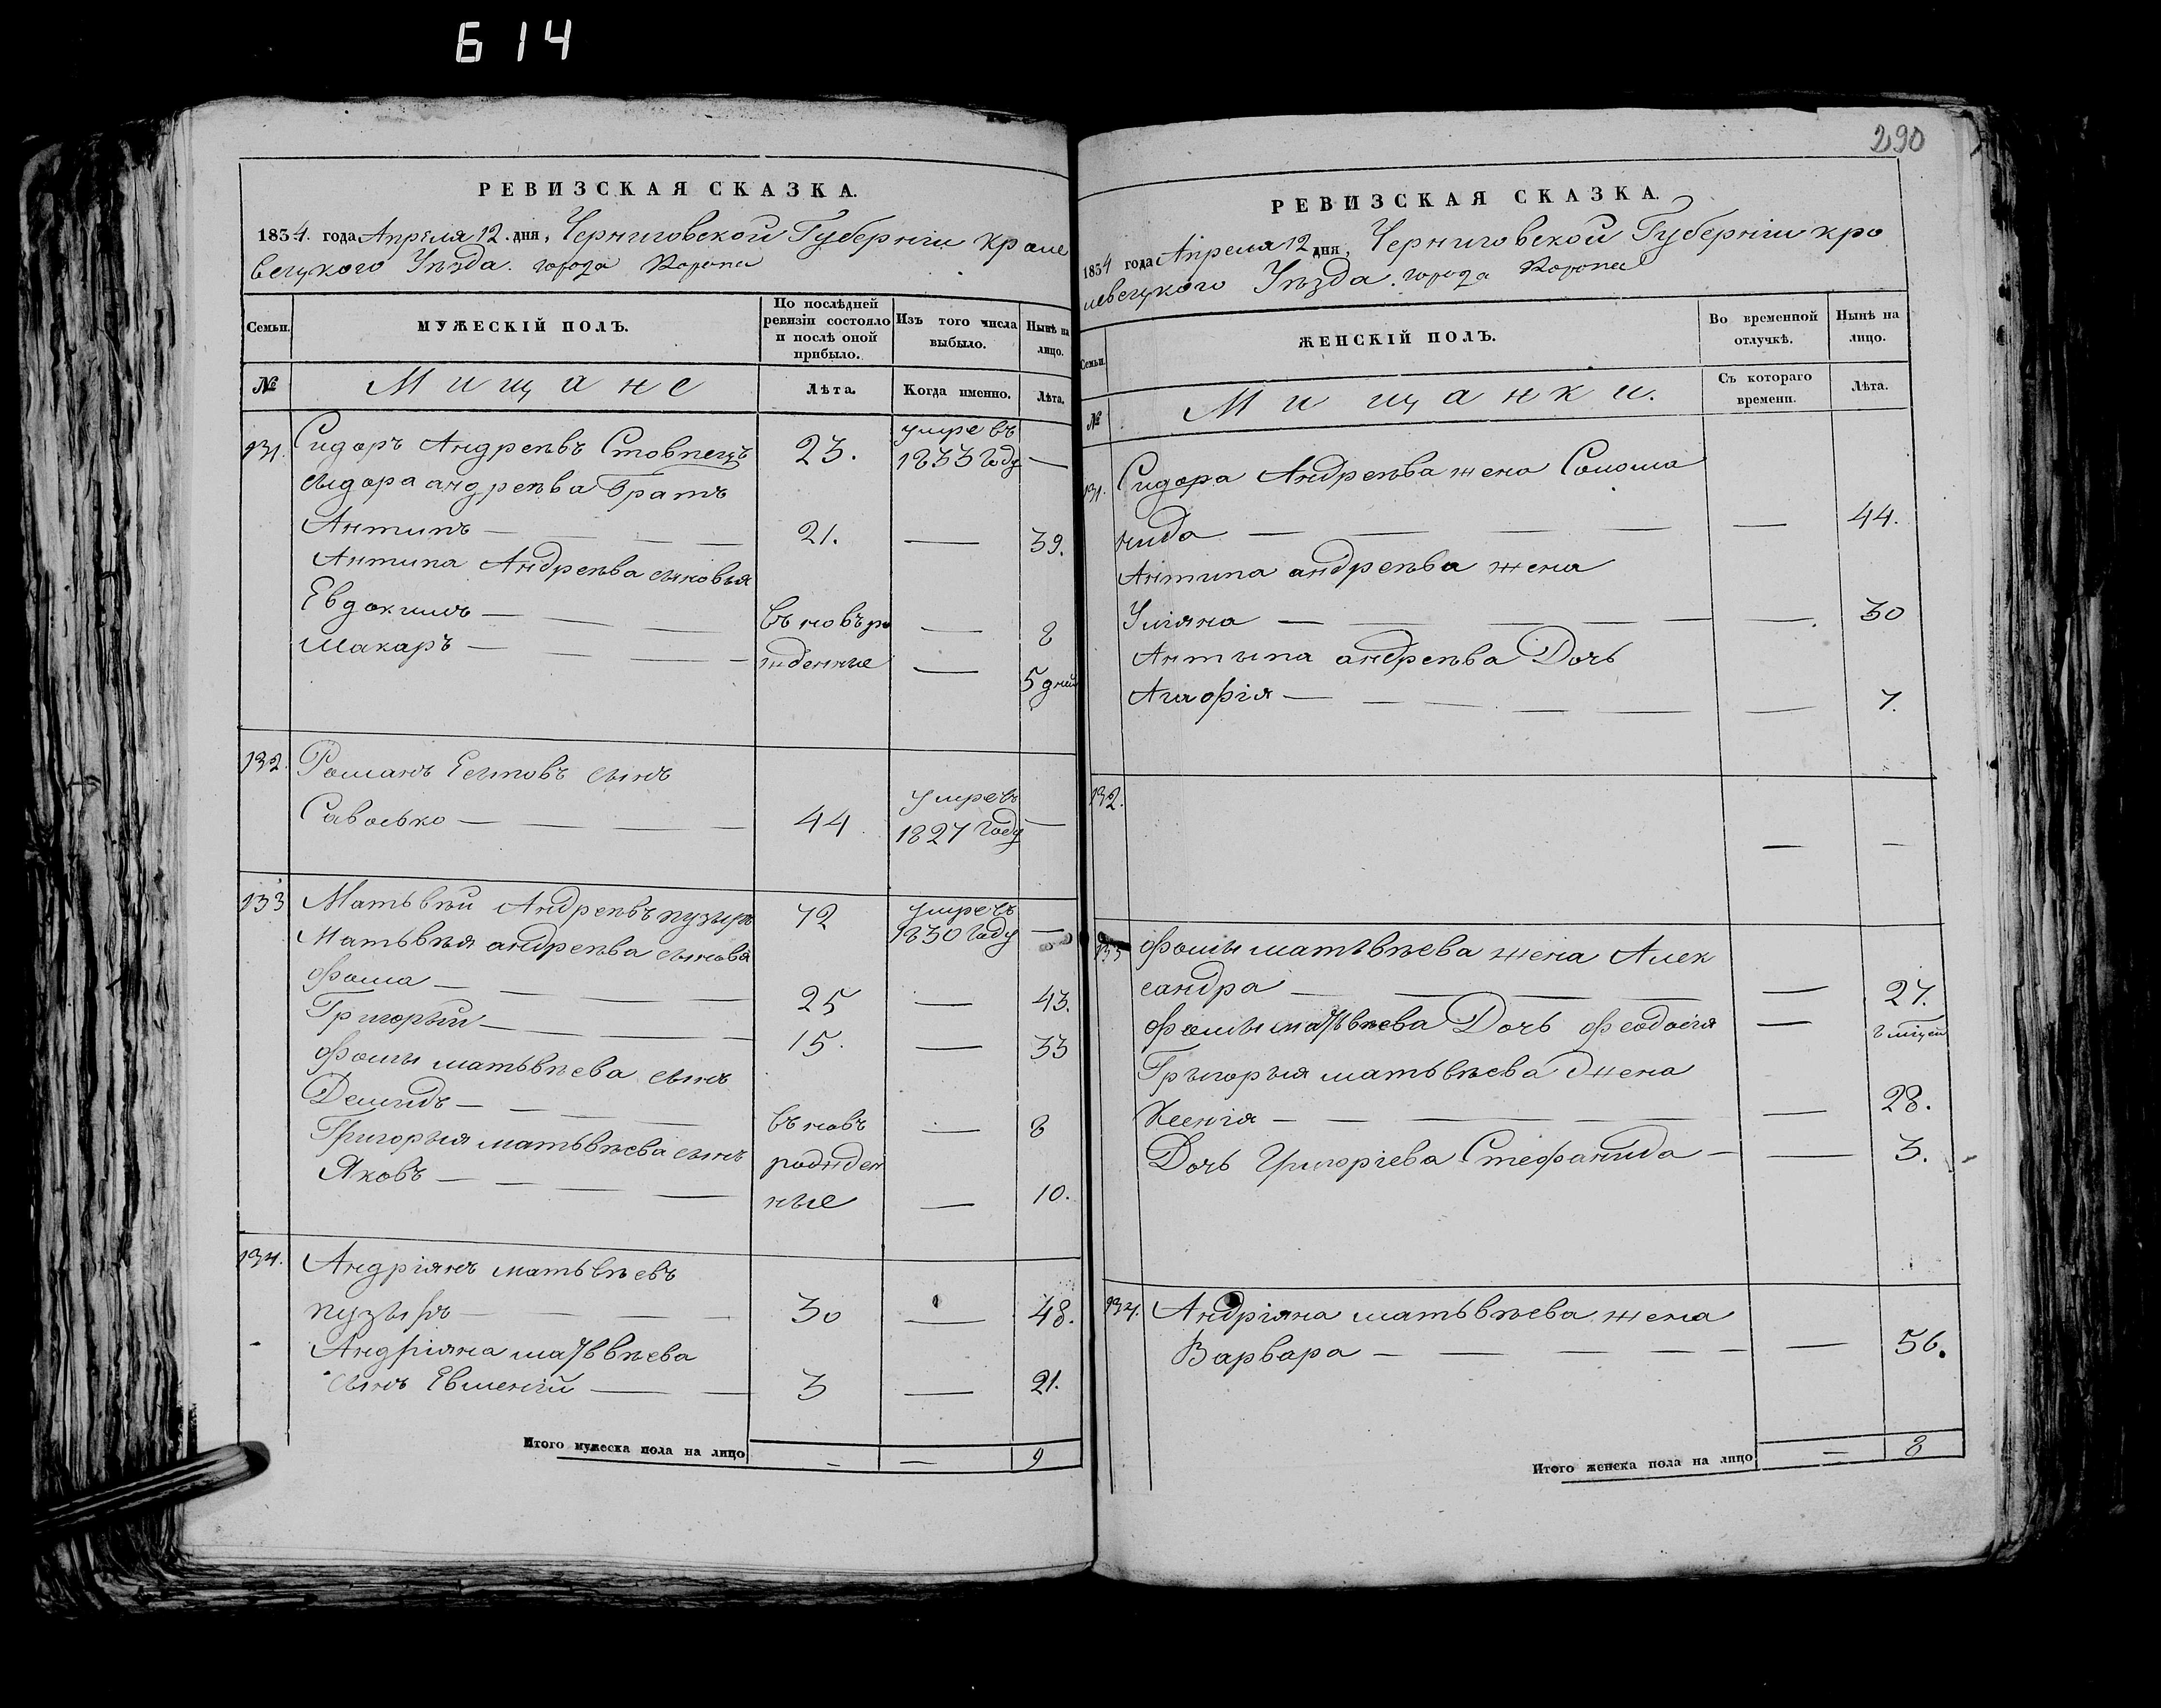 614
РЕВИЗСКАЯ СКАЗКА.
1834. года Апреля 12. дня, Черниговской Губерніи Кроле
вецкого Уѣзда. города Коропа
Семьи.
МУЖЕСКІЙ ПОЛЪ.
По послѣдней ревизіи состояло и послѣ оной прибыло.
Изъ того числа выбыло.
Нынѣ на лицо.
№
Мищане
Лѣта.
Когда именно.
Лѣта.
131. Сидоръ Андреѣвъ Стовпецъ 23. умре въ 1833 году —
Сыдора андреѣва Братъ
Антипъ — 21. — 39.
Антипа Андреѣва сыновья
Евдокимъ — въ новъ ро — 8
Макаръ — жденные — 5 дней
132. Романъ Есыповъ сынъ
Савосько — 44 умре въ 1827 году —
133 Матьвѣй Андреѣвъ пузырь 72 умре въ 1830 году —
Матьвѣя андреѣва сыновья
Фома — 25 — 43.
Григорый — 15. — 33
Фомы матьвѣева сынъ
Демыдъ — въ новъ — 8
Григорыя матьвѣева сынъ рожден
Яковъ — ные — 10.
134. Андріянъ матьвѣевъ
пузырь — 30 — 48.
Андріяна матьвѣева
сынъ Евменій — 3 — 21.
Итого мужеска пола на лицо — — 9
290
РЕВИЗСКАЯ СКАЗКА.
1834 года Апреля 12 дня, Черниговской Губерніи Кро
левецкого Уѣзда. города Коропа
Семьи.
ЖЕНСКІЙ ПОЛЪ.
Во временной отлучкѣ.
Нынѣ на лицо.
№
Мищанки.
Съ котораго времени.
Лѣта.
131. Сидора Андреѣва жена Солома
нида — — 44.
Антипа андреѣва жена
Уліяна — — 30
Антыпа андреѣва Дочь
Агафія — — 7.
132. — —
133 Фомы матьвѣева жена Алек
сандра — — 27.
Фомы матьвѣева Дочь Феодосія —
Грыгорыя матьвѣева жена
Ксенія — — 28.
Дочь Григоріева Стефанида — — 3.
134. Андріяна матьвѣева жена
Варвара — — 56.
Итого женска пола на лицо — 8